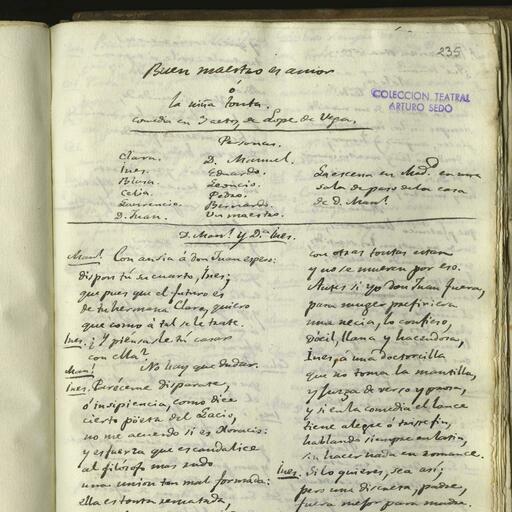 235
Buen maestro es amor
ó
La niña tonta.
comedia en 3 actos, de Lope de Vega.
COLECCION TEATRAL
ARTURO SEDÓ
Personas.
Clara. D. Manuel.
Ines. Eduardo.
Blasa. Leoncio.
Celia. Pedro.
Laurencio. Bernardo.
D. Juan. Un maestro.
La escena en Mad.d en una
sala de paso de la casa
de D. Man.l
D. Man.l y D.a Ines.
Man.l Con ansia á don Juan espero:
dispon tú su cuarto, Ines;
que pues que el futuro es
de tu hermana Clara, quiero
que como á tal se le trate.
Ines. ¿Y piensas le tú casar
con ella?
Man.l No hay que dudar.
Ines. Paréceme disparate,
ó insipiencia, como dice
cierto pöeta del Lacio,
no me acuerdo si es Horacio:
y es fuerza que escandalice
al filósofo mas rudo
una union tan mal formada:
ella es tonta rematada,
con otras tontas estan
y no se mueren por eso.
Antes si yo don Juan fuera,
para muger prefiriera
una necia, lo confieso,
dócil, llana y hacendosa,
Ines, á una doctorcilla
que no toma la mantilla,
y juzga de verso y prosa,
y si en la comedia el lance
tiene alegre ó triste fin,
hablando siempre en latin,
sin hacer nada en romance.
Ines. Si lo quieres, sea así;
pero una discreta, padre,
fuera mejor para madre.